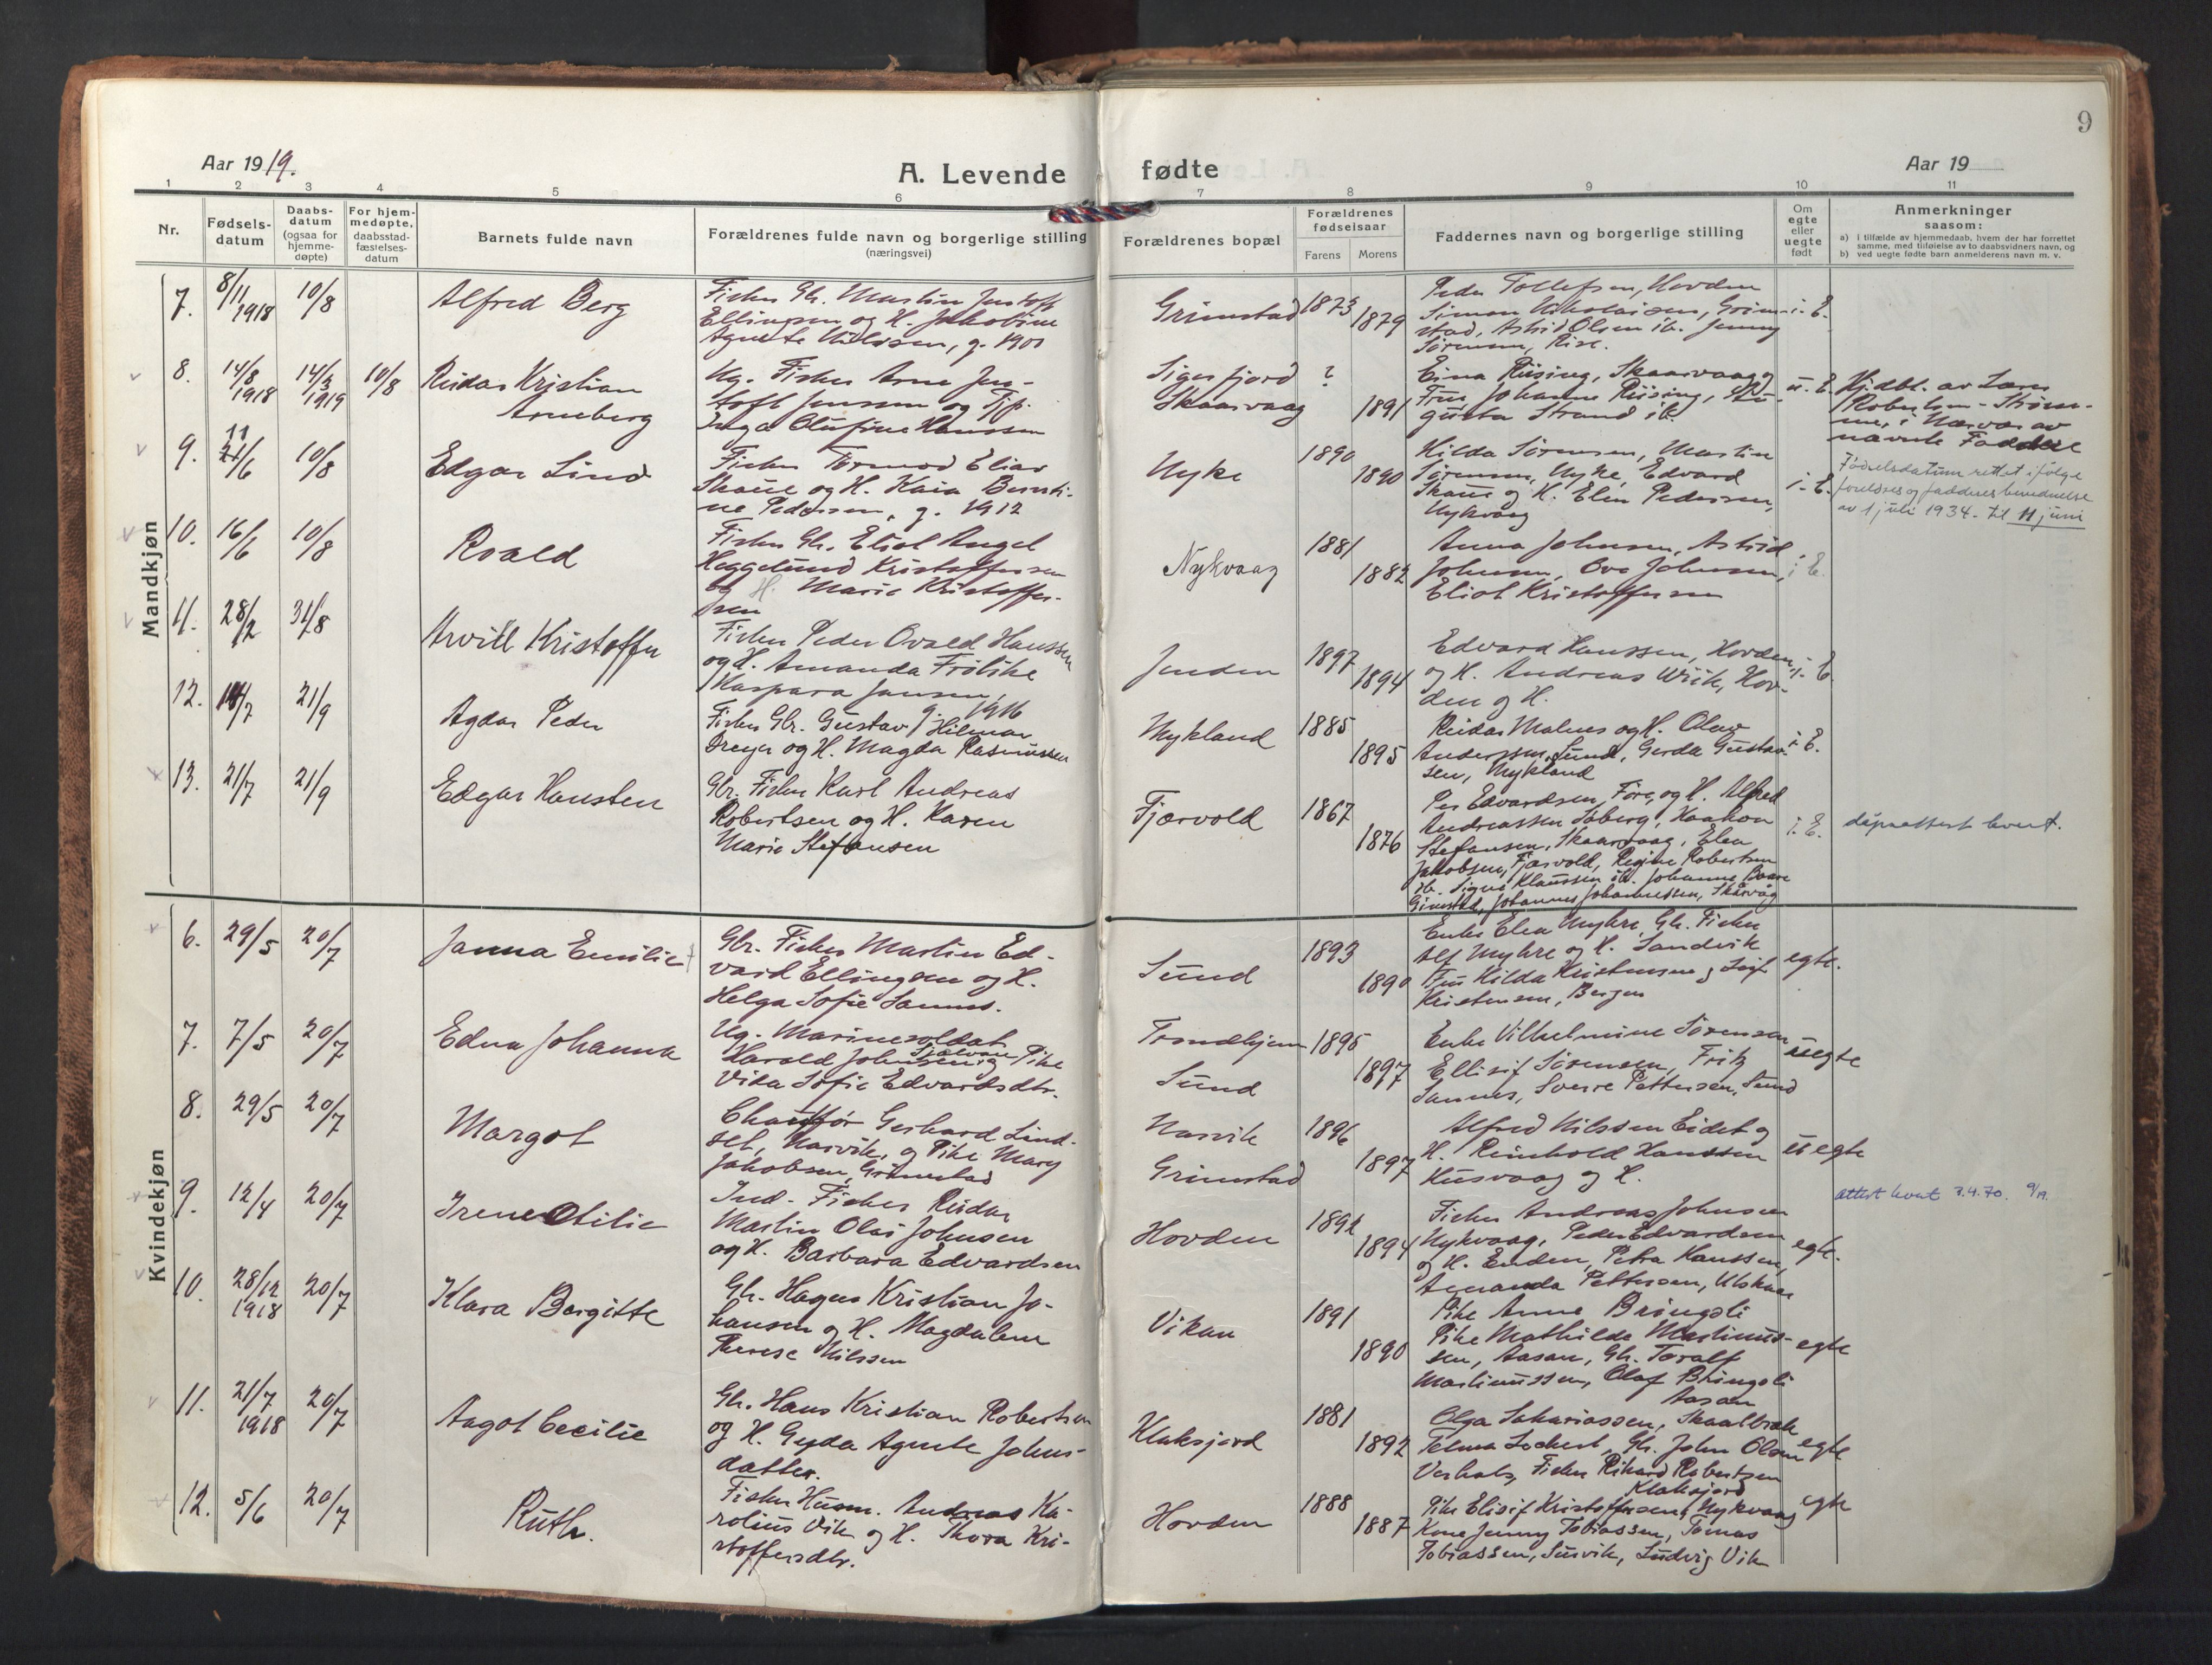 9
Aar 1919.
A. Levende fødte
Aar 19
1 2 3 4 5 6 7 8 9 10 11
Nr.
Fødsels-
datum
Daabs-
datum
(ogsaa for
hjemme-
døpte)
For hjem-
medøpte,
daabsstad-
fæstelses-
datum
Barnets fulde navn
Forældrenes fulde navn og borgerlige stilling
(næringsvei)
Forældrenes bopæl
Forældrenes
fødselsaar
Farens
Morens
Faddernes navn og borgerlige stilling
Om
egte
eller
uegte
født
Anmerkninger
saasom:
a) i tilfælde av hjemmedaab, hvem der har forrettet
samme, med tilføielse av to daabsvidners navn, og
b) ved uegte fødte barn anmelderens navn m. v.
Mandkjøn
7.
8/11 1918
10/8
Alfred Berg
Fisker Gbr. Martin
Ellingsen og H. Jakobine
Agnete Nilssen, g. 1900
Grimstad
1873
1879
Peder Tollefsen, Hovden
Simon Nikolaisen, Grim-
stad, Astrid Olsen ib. Jenny
Sørensen, Rise.
i. E.
8.
14/8 1918
14/3 1919
10/8
Reidar Kristian
Arneberg
Ug. Fisker Arne Jen-
toft Jensen og Tjp.
Inga Olufine Hanssen
Sigerfjord
Skaarvaag
?
1891
Einar Riising, Skaarvaag
Fru Johanne Riising, Au-
gusta Strand ib.
u. E.
Hjdbt. av Lærer
Robertsen - Strøm-
me, i Nærvær av
nævnte Faddere
9.
11
21/6
10/8
Edgar Lind
Fisker Tormod Elias
Skaue og H. Kaia Bernti-
ne Pedersen, g. 1912
Nyke
1890
1890
Hilda Sørensen, Martin
Sørensen, Nyke, Edvard
Skaue og H. Elin Pedersen,
Nykvaag
i. E.
Fødselsdatum rettet ifølge
foreldres og fadderes bevidnelse
av 1 juli 1934. til 11 juni
10.
16/6
10/8
Roald
Fisker Gbr. Eliot Angel
Heggelund Kristoffersen
og H. Marie Kristoffer-
sen
Nykvaag
1881
1882
Anna Johnsen, Astrid
Johnsen, Ove Johnsen,
Eliot Kristoffersen
i E.
11.
28/2
31/8
Arvill Kristoffer
Fisker Peder Ovald Hanssen
og H. Amanda Frølike
Kaspara Jansen,
g. 1916
Jenden
1897
1894
Edvard Hanssen, Hovden,
og H. Andreas Wiik, Hov-
den og H.
i. E.
12.
14/7
21/9
Agdar Peder
Fisker Gbr. Gustav Hilmar
Dreyer og H. Magda Rasmussen
Nykland
1885
1895
Reidar Malnes og H. Olav
Anderssen, Sund, Gerda Gustav-
sen, Nykland
i E.
13.
21/7
21/9
Edgar Hansten
Gbr. Fisker Karl Andreas
Robertsen og H. Karen
Marie Stefansen
Fjærvold
1867
1876
Per Edvardsen, Føre, og H. Alfred
Andreassen Soberg, Haakon
Stefansen, Skaarvaag, Elen
Jakobsen, Fjærvold, Regine Robertsen
ib. Signe Klaussen ib. Johanne
Grimstad, Johannes Johannessen, Skårvåg
i. E.
dåpsattest levert.
Kvindekjøn
6.
29/5
20/7
Janna Emilie
Gbr. Fisker Martin Ed-
vard Ellingsen og H.
Helga Sofie Sannes.
Sund
1893
1890
Enke Elen Myhre, Gbr. Fisker
Alf Myhre og H. Sandvik
Fru Hilda Kristensen og Leif
Kristensen, Bergen
egte.
7.
7/5
20/7
Edna Johanna
Ug. Marinesoldat
Harald Johnsen og Pike
Vida Sofie Edvardsdtr.
Trondhjem
Sund
1895
1897
Enke Vilhelmine Sørensen
Ellisif Sørensen, Fritz
Sannes, Sverre Pettersen, Sund
uegte
8.
29/5
20/7
Margot
Chauffør Gerhard Lind-
set, Narvik, og Pike Mary
Jakobsen, Grimstad
Narvik
Grimstad
1896
1897
Alfred Nilssen Eidet og
H. Reinhold Hanssen
Husvaag og H.
uegte
9.
12/4
20/7
Irene Otilie
Ind. Fisker Reidar
Martin Olai Johnsen
og H. Barbara Edvardsen
Hovden
1892
1894
Fisker Andreas Johnsen
Nykvaag, Peder Edvardsen
og H. Enden, Petra Hanssen,
Amanda Pettersen, Utskar
egte.
attest levert 3.4.70. 9/19.
10.
28/12 1918
20/7
Klara Bergitte
Gbr. Hagen Kristian Jo-
hansen og H. Magdalene
Therese Nilssen
Vikan
1891
1890
Pike Anne Bringsli
Pike Mathilde Martinus-
sen, Aasan, Gbr. Toralf
Martinussen, Olaf Bringsli
Aasan
egte
11.
21/7 1918
20/7
Aagot Cecilie
Gbr. Hans Kristian Robertsen
og H. Gyda Agnete Johns-
datter.
Klaksjord
1881
1892
Olga Sakariassen, Skaalbrek
Telma Lockert, Gbr. John Olsen
Verhals, Fisker Rikard Robertsen
Klaksjord
egte
12.
5/6
20/7
Ruth.
Fisker Husm. Andreas Ka-
rolius Vik og H. Thora Kri-
stoffersdtr.
Hovden
1888
1887
Pike Elisif Kristoffersen, Nykvaag
Kone Jenny Tobiassen, Tomas
Tobiassen, Survik, Ludvig Vik
egte